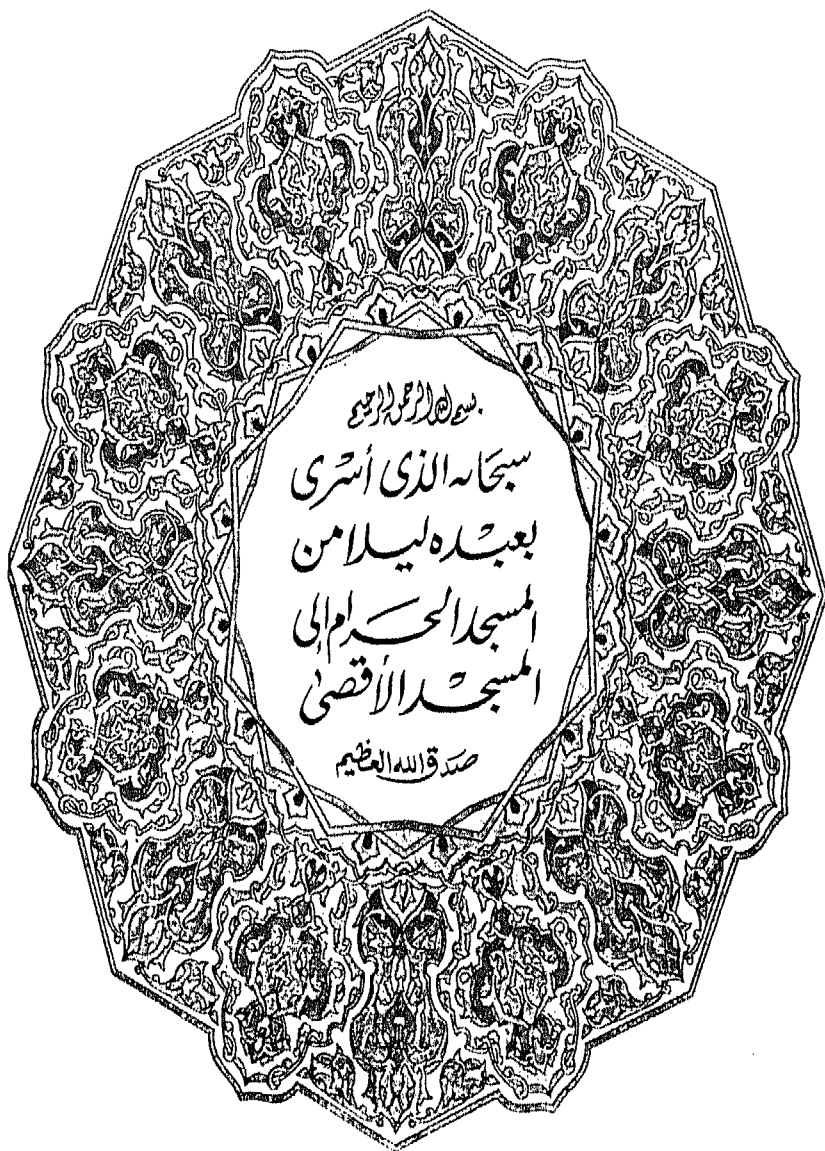 بسم الله الرحمن الرحيم
سبحان الذى أسرى
بعبده ليلا من
المسجد الحرام إلى
المسجد الأقصى
صدق الله العظيم